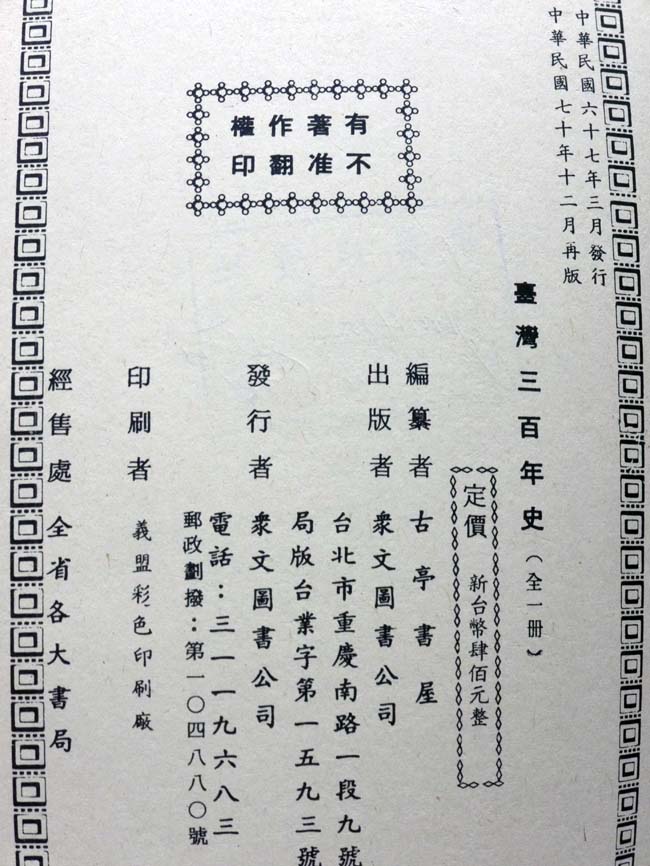 中華民國六十七年三月發行
中華民國七十年十二月再版
有著作權
不准翻印
臺灣三百年史（全一冊）
定價 新台幣肆佰元整
編纂者 古亭書屋
出版者 衆文圖書公司
台北市重慶南路一段九號
局版台業字第一五九三號
發行者 衆文圖書公司
電話：三一一九六八三
郵政劃撥：第一〇四八八〇號
印刷者 義盟彩色印刷廠
經售處 全省各大書局